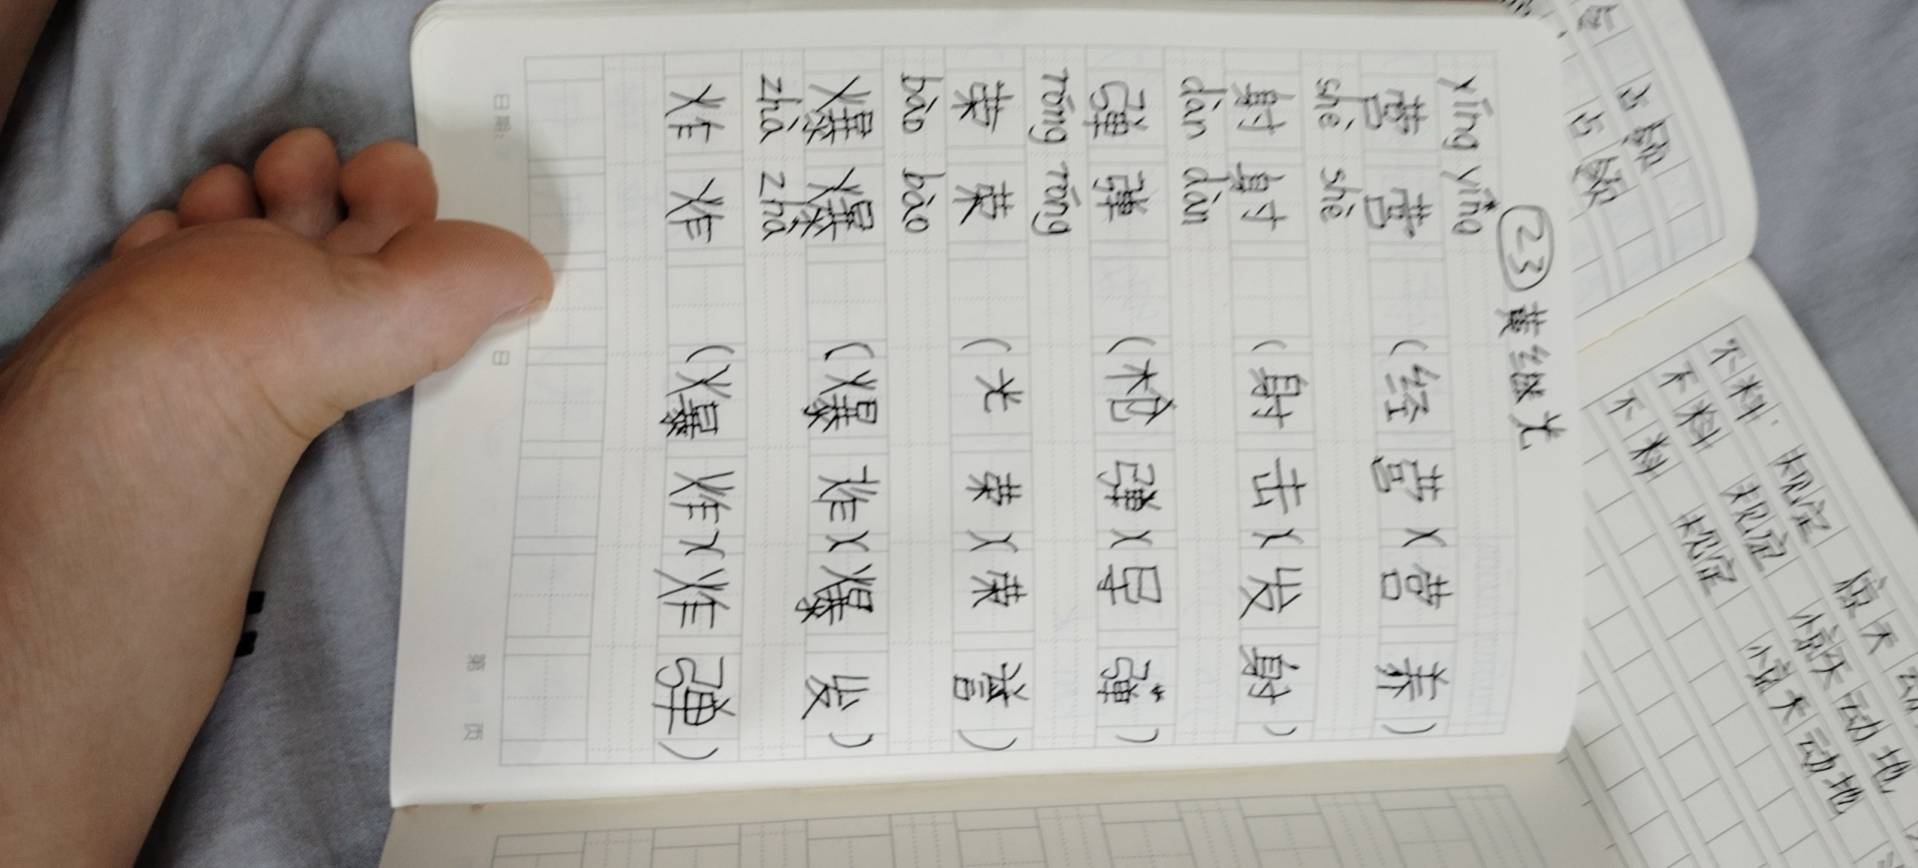 ㉓黄继光
yíng yíng
营 营 (经营)(营养)
shè shè
射 射 (射击)(发射)
dàn dàn
弹 弹 (枪弹)(导弹)
róng róng
荣 荣 (光荣)(荣誉)
bào bào
爆 爆 (爆炸)(爆发)
zhà zhà
炸 炸 (爆炸)(炸弹)
日期: 日
第 页
占据
占据
不料 规定 惊天动
不料 规定 惊天动地
不料 规定 惊天动地